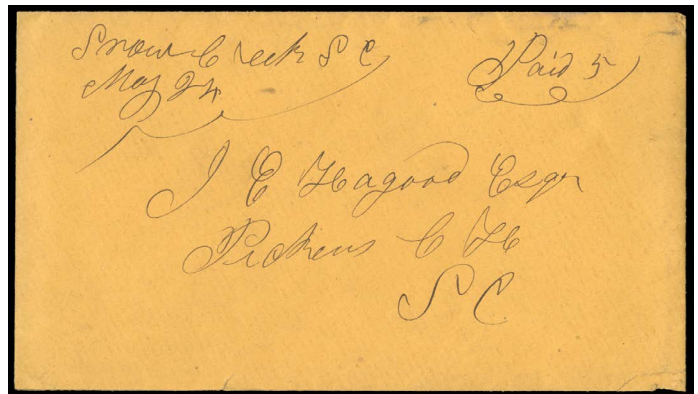 Snow Creek S C
May 24
Paid 5
J E Hagood Esqr
Pickens C H
S C